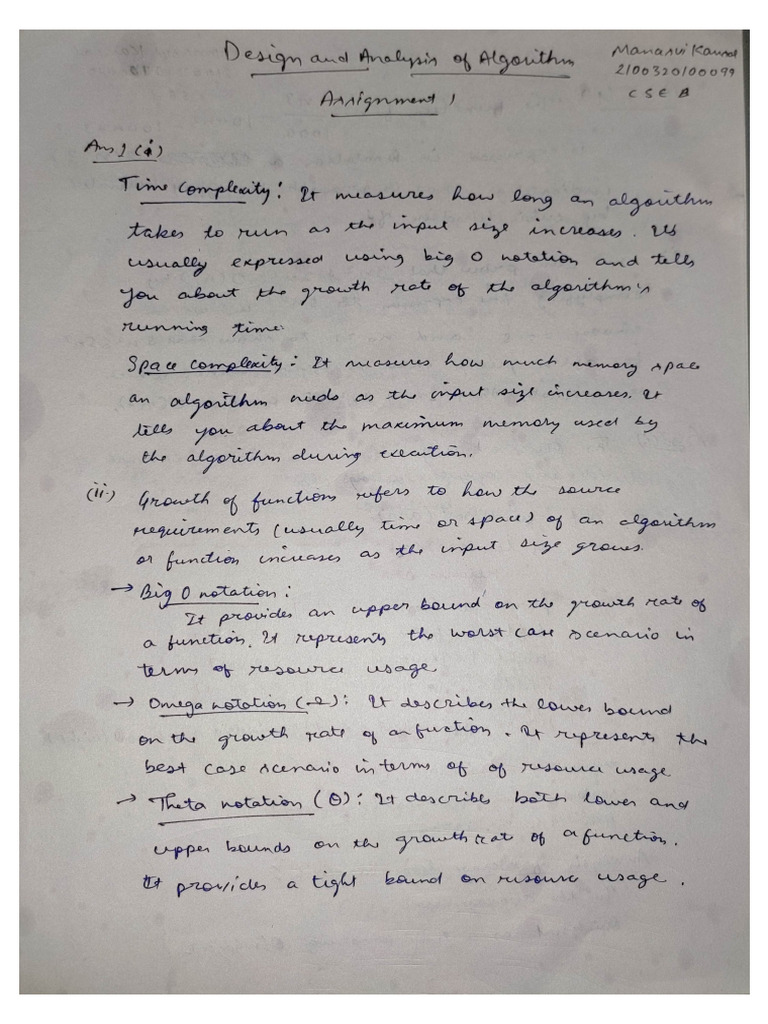 Design and Analysis of Algorithm
Manasvi
2100320100099
CSE B
Assignment 1
Ans 1 (i)
Time complexity: It measures how long an algorithm
takes to run as the input size increases. Its
usually expressed using big O notation and tells
you about the growth rate of the algorithm's
running time.
Space complexity: It measures how much memory space
an algorithm needs as the input size increases. It
tells you about the maximum memory used by
the algorithm during execution.
(ii.) Growth of functions refers to how the source
requirements (usually time or space) of an algorithm
or function increases as the input size grows.
→ Big O notation:
It provides an upper bound on the growth rate of
a function. It represents the worst case scenario in
terms of resource usage
→ Omega notation (Ω): It describes the lower bound
on the growth rate of a function. It represents the
best case scenario in terms of of resource usage
→ Theta notation (θ): It describes both lower and
upper bounds on the growth rate of a function.
It provides a tight bound on resource usage.